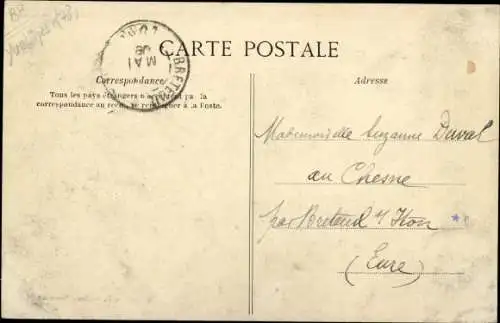 CARTE POSTALE
Correspondance
Adresse
Tous les pays étrangers n'acceptent pas la
correspondance au recto, se renseigner à la Poste.
MAI
08
Mademoiselle Suzanne Duval
au Chesne
par Breteuil s/ Iton
(Eure)